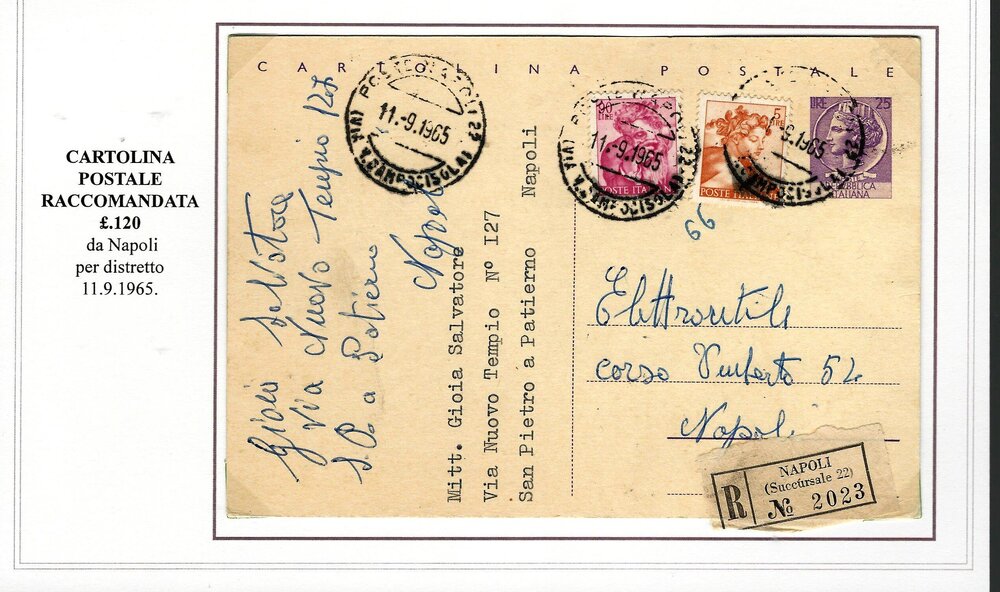 CARTOLINA
POSTALE
RACCOMANDATA
£.120
da Napoli
per distretto
11.9.1965.
CARTOLINA POSTALE
11.-9.1965
90
LIRE
POSTE ITALIANE
11.-9.1965
5
LIRE
POSTE ITALIANE
9.1965
LIRE 25
REPUBBLICA
ITALIANA
66
Gioia Salvatore
Via Nuovo Tempio 127
S. P. a Patierno
Napoli
Mitt. Gioia Salvatore
Via Nuovo Tempio N° I27
San Pietro a Patierno Napoli
Elettroutile
corso Umberto 52
Napoli
R
NAPOLI
(Succursale 22)
№ 2023